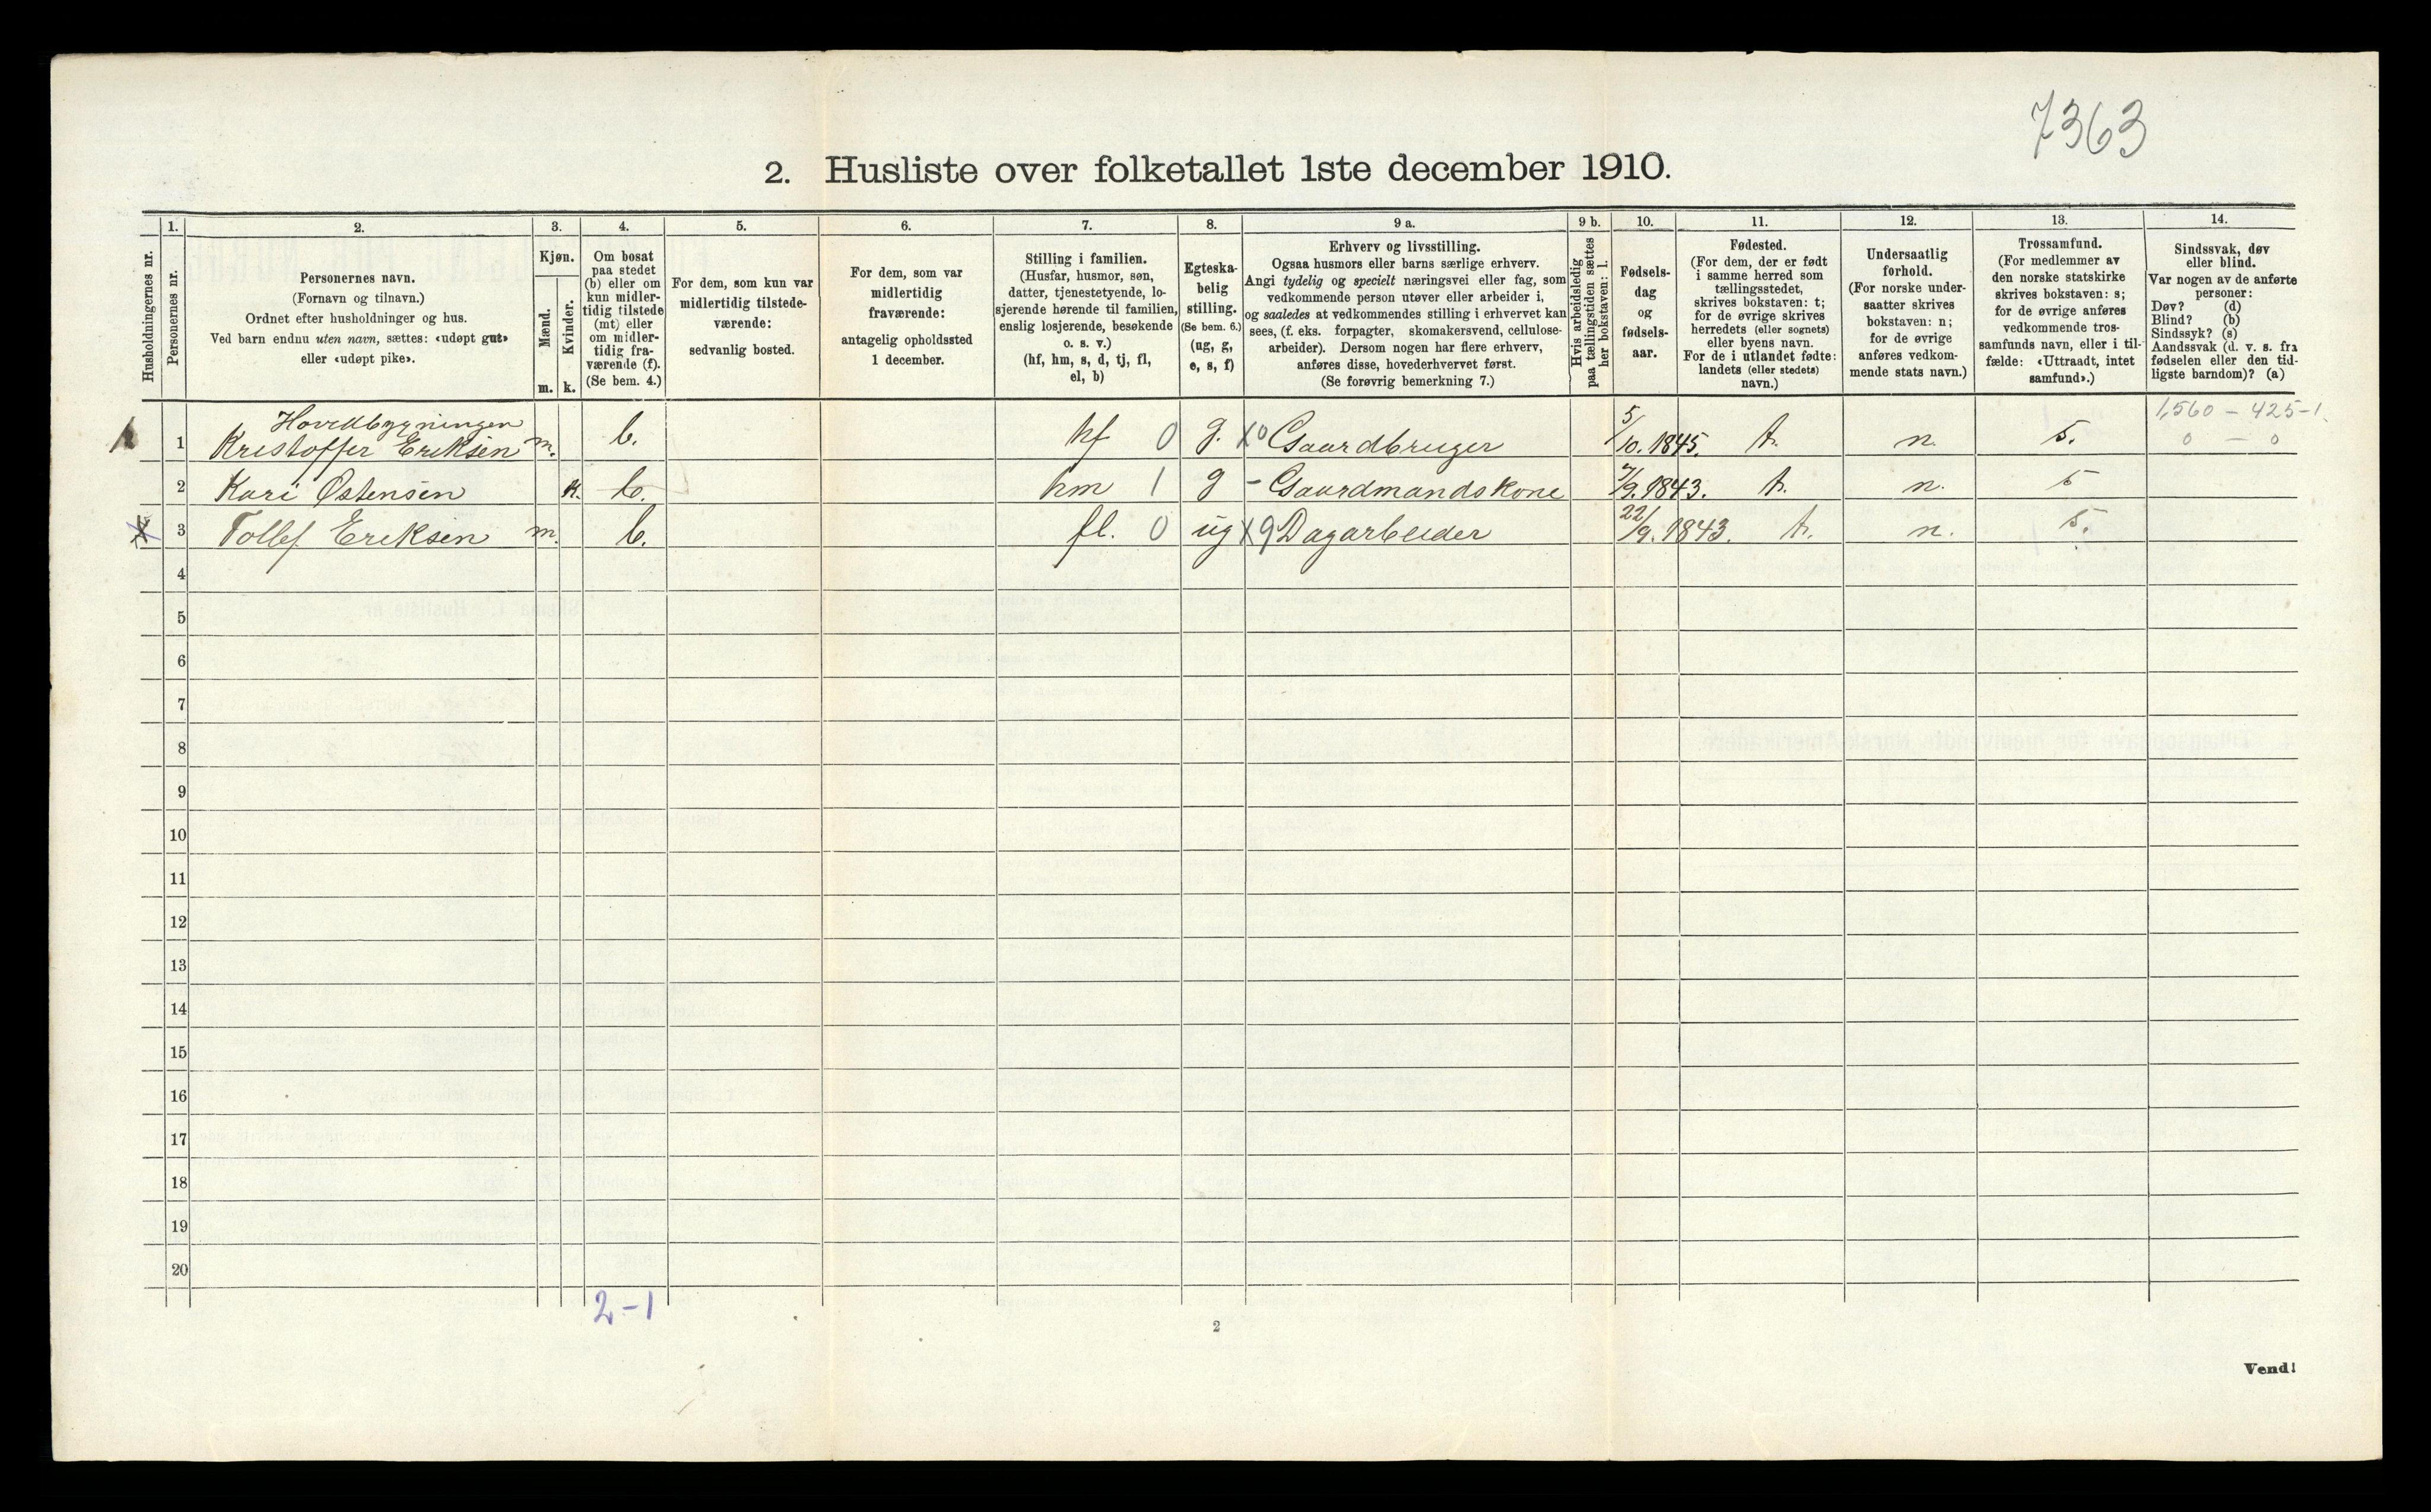 7363
2. Husliste over folketallet 1ste december 1910.
Husholdningernes nr.
1.
Personernes nr.
2.
Personernes navn.
(Fornavn og tilnavn.)
Ordnet efter husholdninger og hus.
Ved barn endnu uten navn, sættes: «udøpt gut»
eller «udøpt pike».
3.
Kjøn.
Mænd.
m.
Kvinder.
k.
4.
Om bosat
paa stedet
(b) eller om
kun midler-
tidig tilstede
(mt) eller
om midler-
tidig fra-
værende (f).
(Se bem. 4.)
5.
For dem, som kun var
midlertidig tilstede-
værende:
sedvanlig bosted.
6.
For dem, som var
midlertidig
fraværende:
antagelig opholdssted
1 december.
7.
Stilling i familien.
(Husfar, husmor, søn,
datter, tjenestetyende, lo-
sjerende hørende til familien,
enslig losjerende, besøkende
o. s. v.)
(hf, hm, s, d, tj, fl,
el, b)
8.
Egteska-
belig
stilling.
(Se bem. 6.)
(ug, g,
e, s, f)
9 a.
Erhverv og livsstilling.
Ogsaa husmors eller barns særlige erhverv.
Angi tydelig og specielt næringsvei eller fag, som
vedkommende person utøver eller arbeider i,
og saaledes at vedkommendes stilling i erhvervet kan
sees, (f. eks. forpagter, skomakersvend, cellulose-
arbeider). Dersom nogen har flere erhverv,
anføres disse, hovederhvervet først.
(Se forøvrig bemerkning 7.)
9 b.
Hvis arbeidsledig
paa tællingstiden sættes
her bokstaven: l.
10.
Fødsels-
dag
og
fødsels-
aar.
11.
Fødested.
(For dem, der er født
i samme herred som
tællingsstedet,
skrives bokstaven: t;
for de øvrige skrives
herredets (eller sognets)
eller byens navn.
For de i utlandet fødte:
landets (eller stedets)
navn.)
12.
Undersaatlig
forhold.
(For norske under-
saatter skrives
bokstaven: n;
for de øvrige
anføres vedkom-
mende stats navn.)
13.
Trossamfund.
(For medlemmer av
den norske statskirke
skrives bokstaven: s;
for de øvrige anføres
vedkommende tros-
samfunds navn, eller i til-
fælde: «Uttraadt, intet
samfund».)
14.
Sindssvak, døv
eller blind.
Var nogen av de anførte
personer:
Døv? (d)
Blind? (b)
Sindssyk? (s)
Aandssvak (d. v. s. fra
fødselen eller den tid-
ligste barndom)? (a)
Hovedbygningen 1,560 – 425-1
1 1 Kristoffer Eriksen m. b. hf 0 g. X0 Gaardbruger 5/10. 1845. t. n. s. 0 – 0
2 Kari Østensen k. b. hm 1 g - Gaardmandskone 7/9. 1843. t. n. s
x 3 Tollef Eriksen m. b. fl. 0 ug X9 Dagarbeider 22/9. 1843. t. n. s.
4
5
6
7
8
9
10
11
12
13
14
15
16
17
18
19
20
2-1
2
Vend!